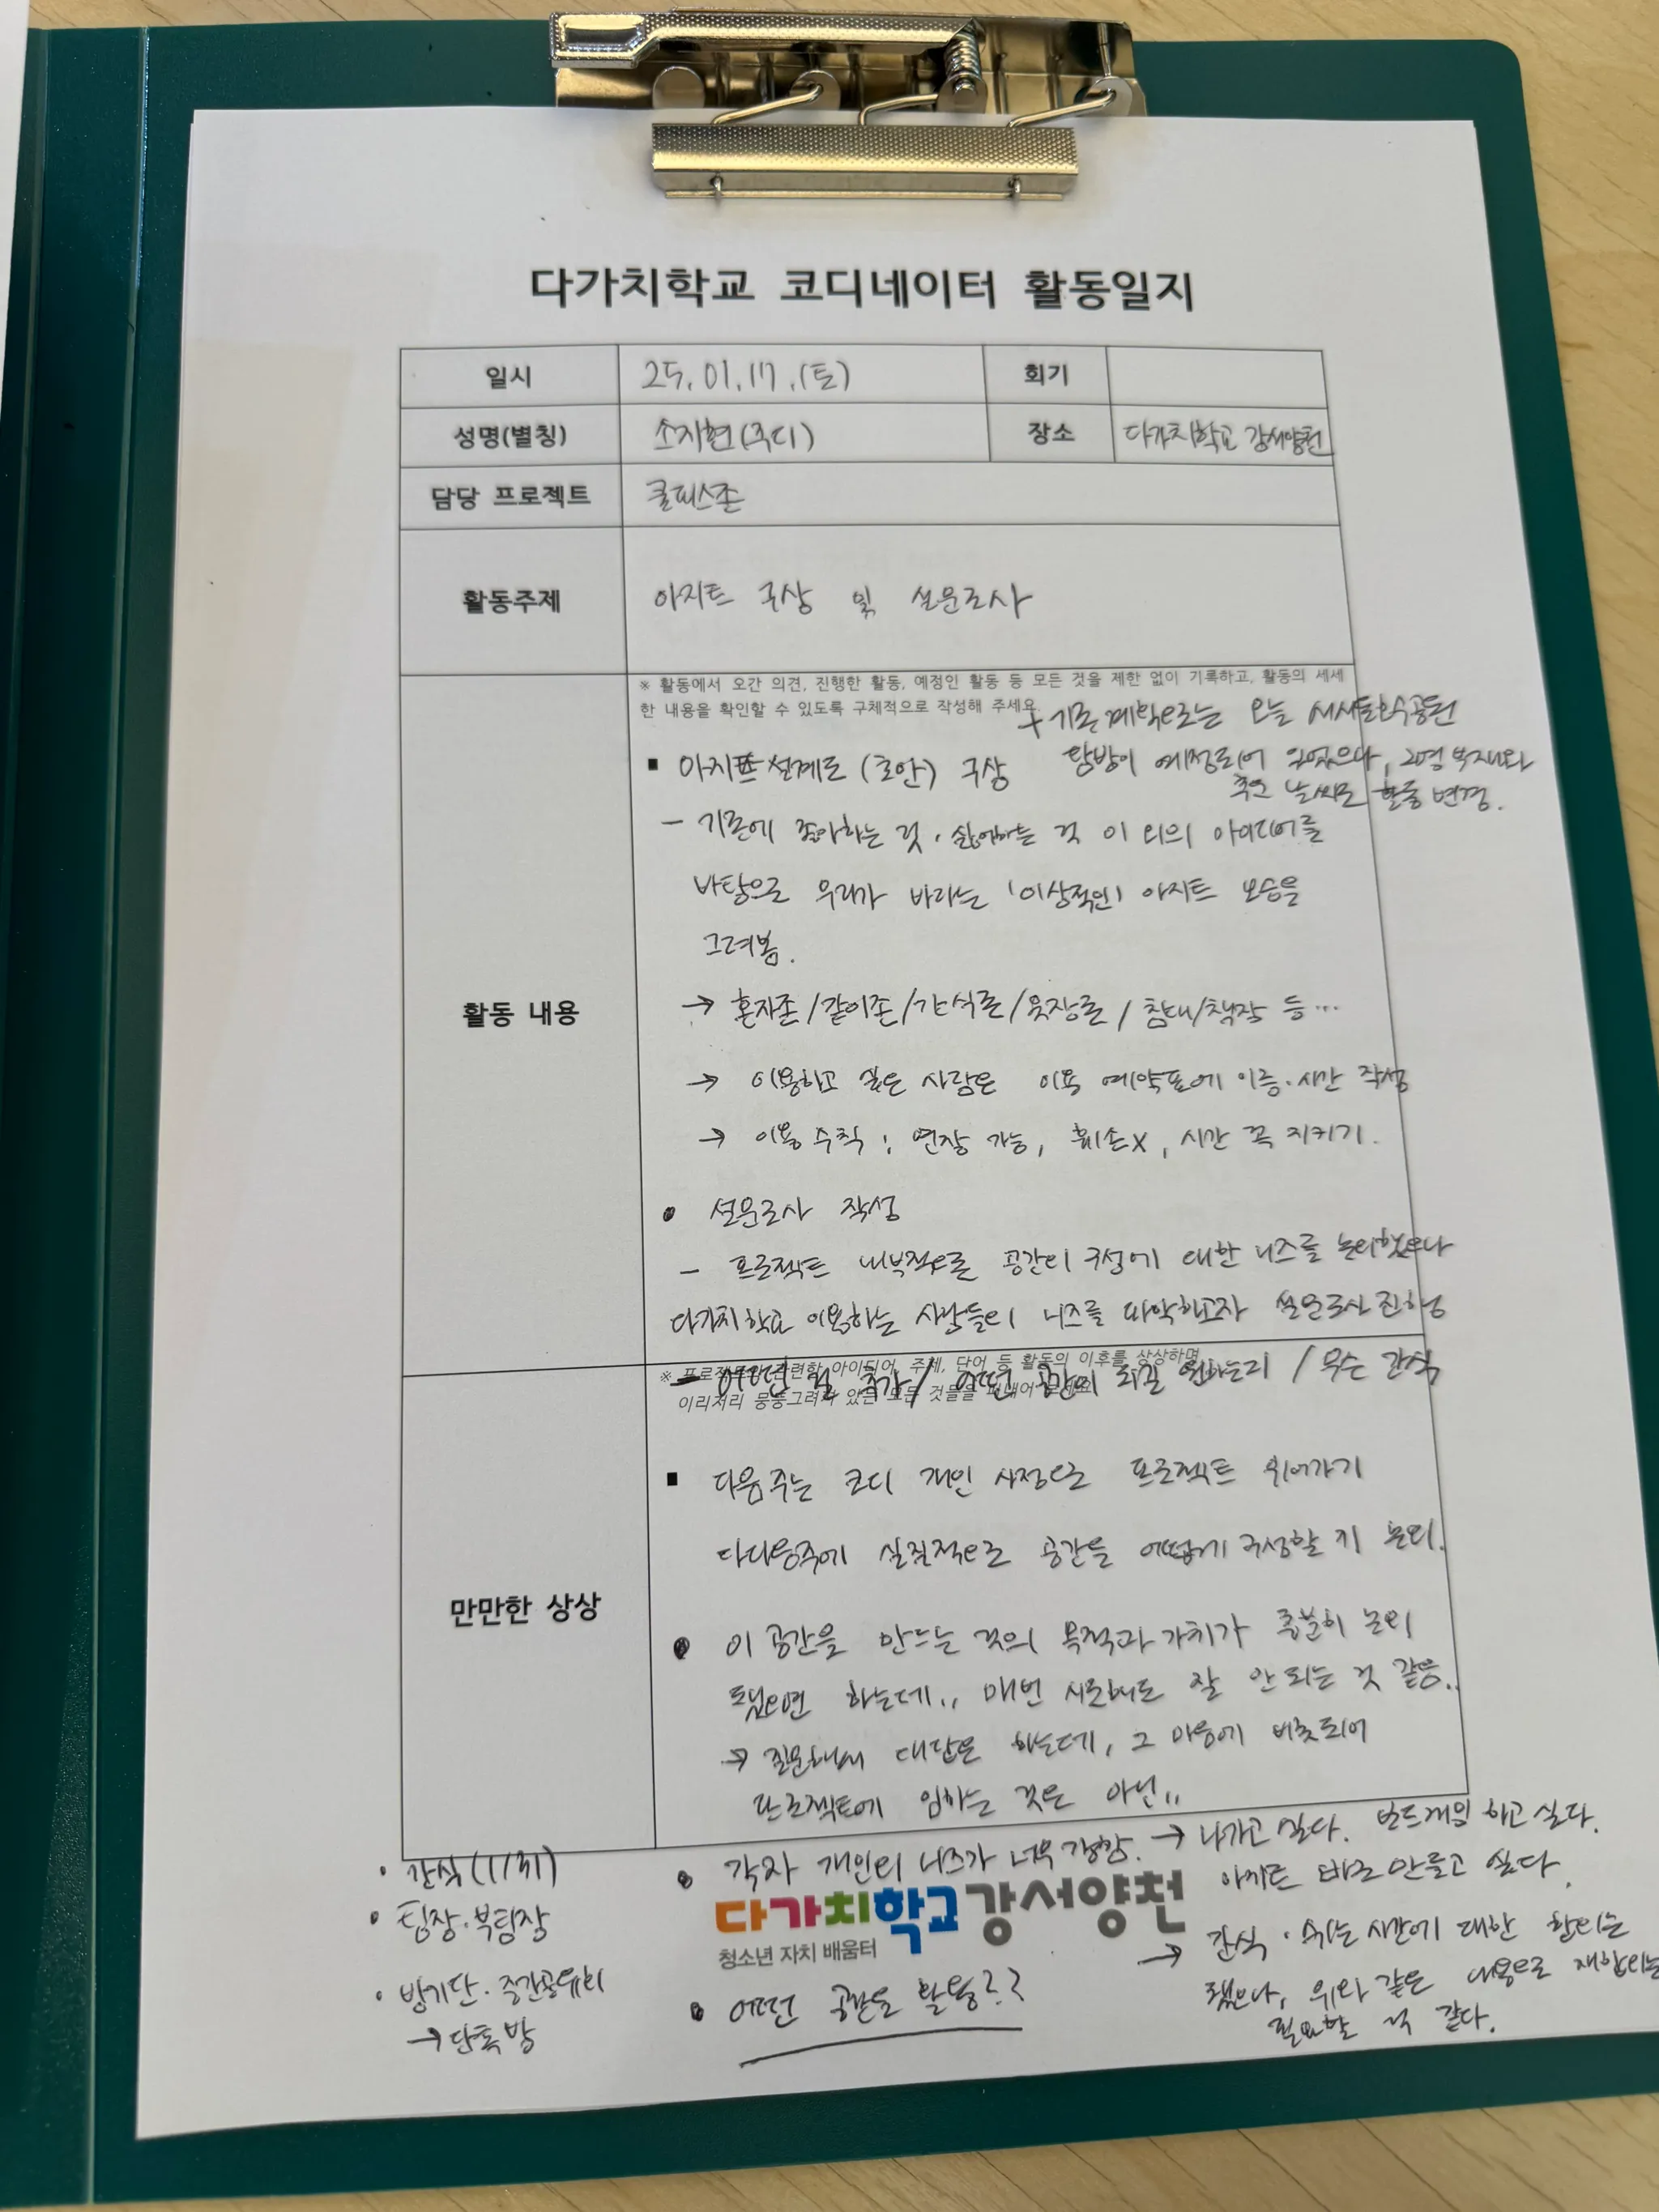 다가치학교 코디네이터 활동일지
일시 25.01.17.(토) 회기
성명(별칭) 소지현(쿠디) 장소 다가치학교 강서양천
담당 프로젝트 쿨피스존
활동주제 아지트 구상 및 설문조사
※ 활동에서 오간 의견, 진행한 활동, 예정인 활동 등 모든 것을 제한 없이 기록하고, 활동의 세세
한 내용을 확인할 수 있도록 구체적으로 작성해 주세요.
+ 기존 계획으로는 오늘 서서울호수공원
탐방이 예정되어 있었으나, 2명 부재와
추운 날씨로 활동 변경.
활동 내용
▪ 아지트 설계도 (초안) 구상
- 기존에 좋아하는 것·싫어하는 것 이 외의 아이디어를
바탕으로 우리가 바라는 '이상적인' 아지트 모습을
그려봄.
→ 혼자존/같이존/간식존/옷장존/침대/책장 등…
→ 이용하고 싶은 사람은 이용 예약표에 이름·시간 작성
→ 이용수칙 : 연장 가능, 훼손X, 시간 꼭 지키기.
• 설문조사 작성
- 프로젝트 내부적으로 공간의 구성에 대한 니즈를 논의했으나
다가치학교 이용하는 사람들의 니즈를 파악하고자 설문조사 진행
※ 프로젝트와 관련한 아이디어, 주제, 단어 등 활동의 이후를 상상하며
이리저리 뭉뚱그려져 있는 모든 것들을
- 어떤 추가/ 어떤 공간이 되길 원하는지 / 무슨 간식
만만한 상상
▪ 다음주는 코디 개인 사정으로 프로젝트 쉬어가기
다다음주에 실질적으로 공간을 어떻게 구성할 지 논의.
• 이 공간을 만드는 것의 목적과 가치가 충분히 논의
됐으면 하는데.. 매번 시도해도 잘 안 되는 것 같음..
→ 질문해서 대답은 하는데, 그 마음에 비춰되어
프로젝트에 임하는 것은 아닌..
• 각자 개인의 니즈가 너무 강함. → 나가고 싶다. 보드게임 하고 싶다.
아지트 바로 만들고 싶다.
→ 간식·쉬는 시간에 대한 합의는
됐으나, 위와 같은 내용으로 재합의는
필요할 것 같다.
• 어떤 공간을 활용??
• 간식(1/31)
• 팀장·부팀장
• 방기단·중간공유회
→ 단톡방
다가치학교 강서양천
청소년 자치 배움터